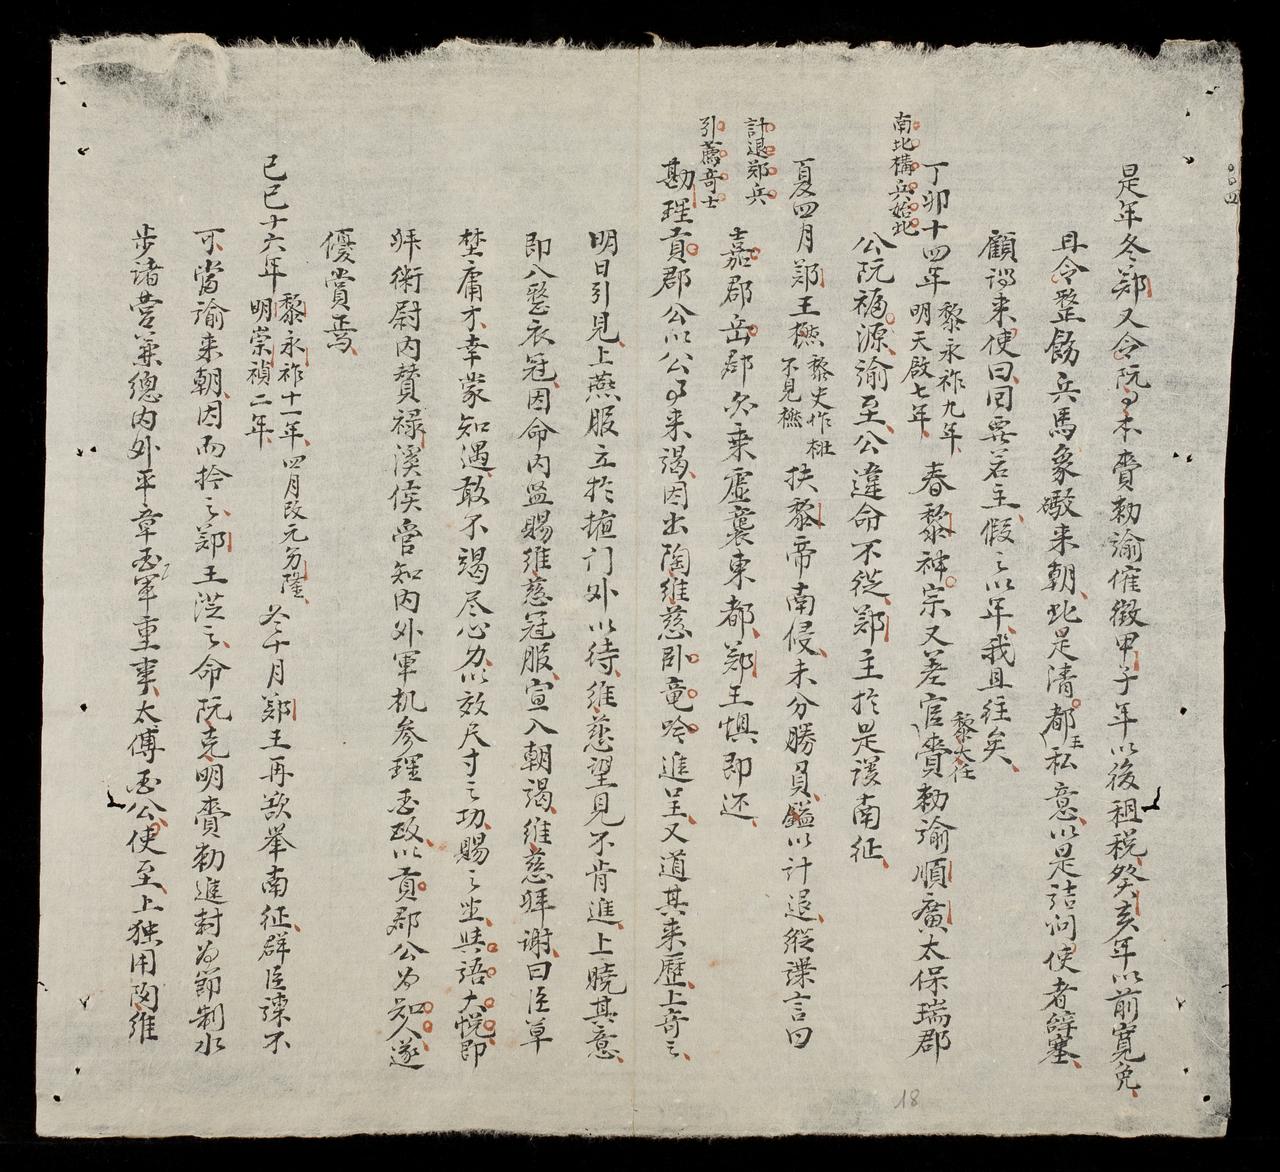 是年冬鄭又令阮事本賫勅諭催徵甲子年以後租稅癸亥年以前寬免
且令整飭兵馬象礮来朝此是清都王私意以是詰问使者辞塞
顧謂来使曰回要若主假之以年我且往矣
南北構兵始此
丁卯十四年黎永祚九年明天啟七年春黎神宗又差官黎大任賫勅諭順廣太保瑞郡
公阮福源諭至公違命不從鄭主於是議南征
夏四月鄭王橅黎史作樁不見橅扶黎帝南侵未分勝負鎰以計退縱諜言曰
計退鄭兵
嘉郡岳郡欲乗虚襲東都鄭王惧即还
引薦奇士
勘理貢郡公以公事来谒因出陶維慈卧竜吟進呈又道其来歷上奇之
明日引見上燕服立於掖门外以待維慈望見不肯進上曉其意
即入整衣冠因命内监賜維慈冠服宣入朝谒維慈拜谢曰臣草
埜庸才幸蒙知遇敢不竭尽心力以效尺寸之功賜之坐與語大悅即
拜衙尉内贊禄溪侯管知内外軍机参理国政以貢郡公为知人遂
優賞焉
己巳十六年黎永祚十一年四月改元为德隆明崇禎二年冬十月鄭王再欲举南征群臣諫不
可當諭来朝因而拎之鄭王從之命阮克明賫勅進封为節制水
步诸营兼總内外平章国军重事太傅国公使至上独用陶維
18